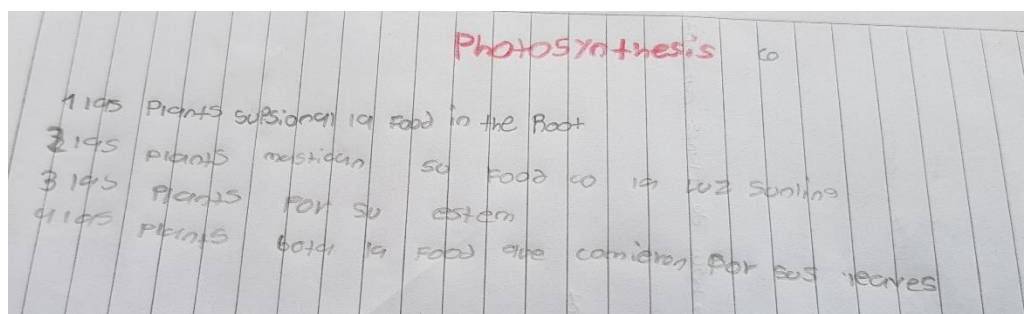 Photosynthesis co
1 las Plants supsional la Food in the Root
2 las plants mastidan su Food co la luz Sunling
3 las Plants Por su estem
4 las Plants bota la Food que comieron Por sus leaves